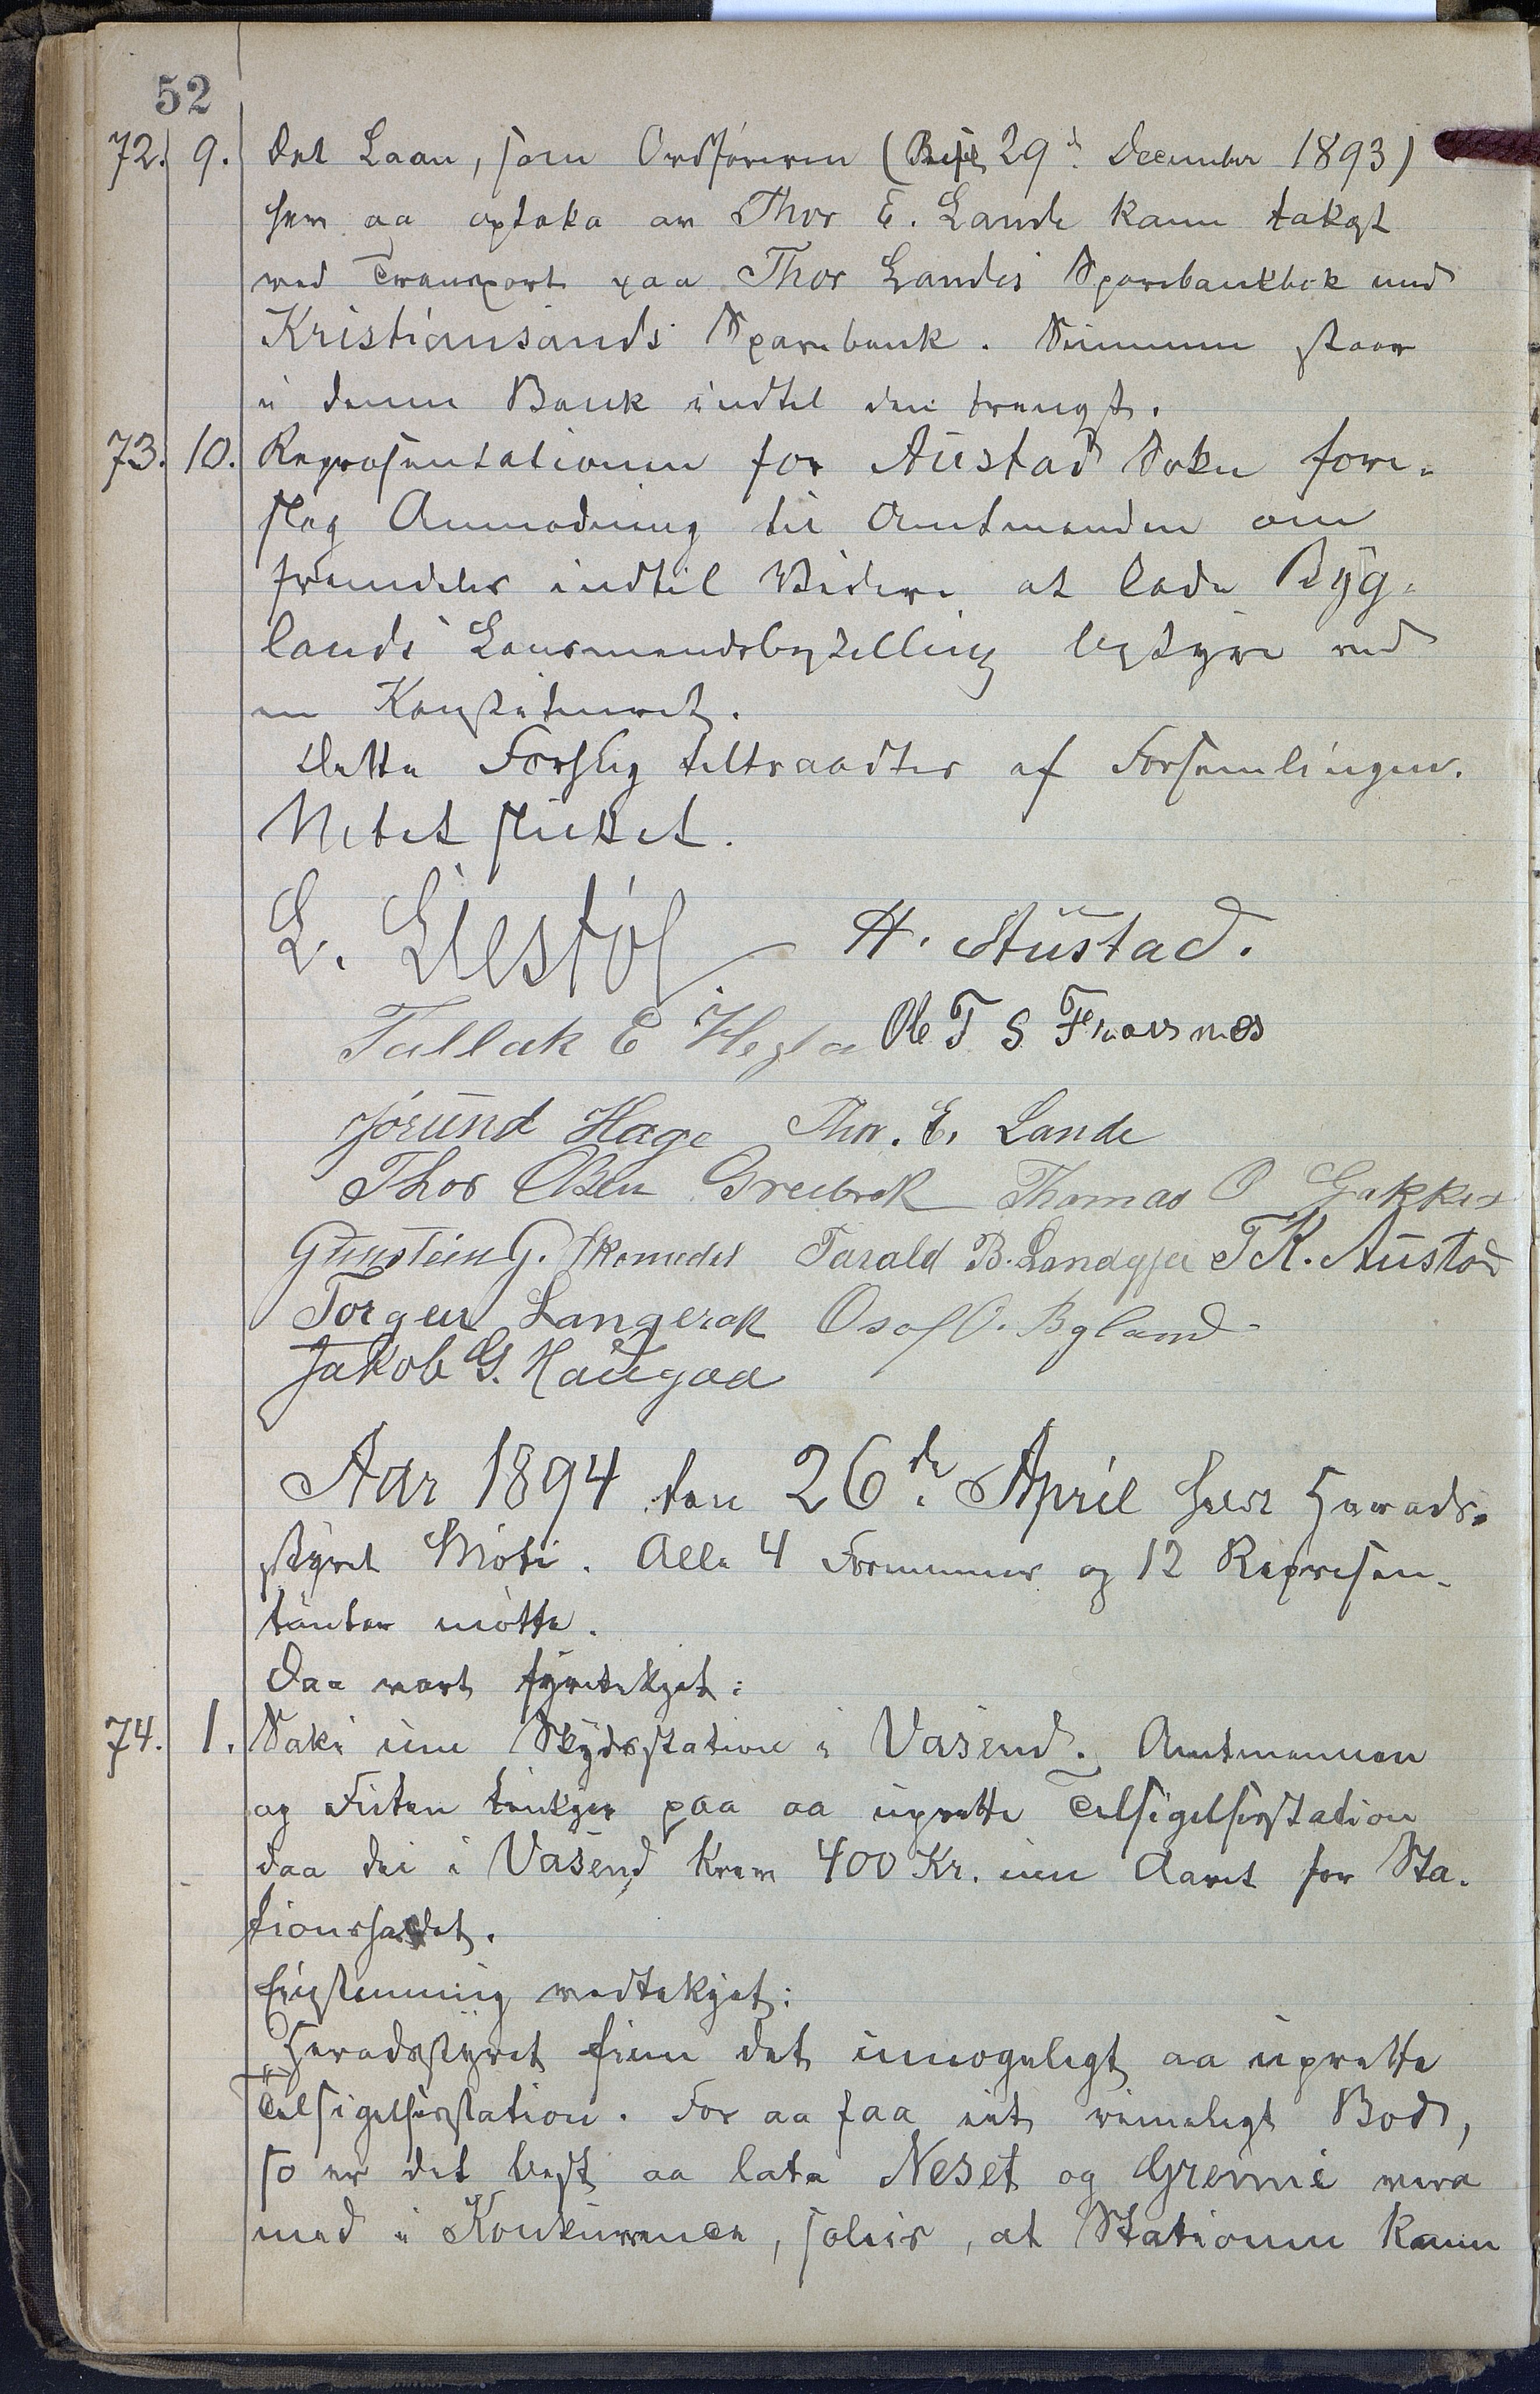 52
72. 9. Det Laan, som Ordføraren (29de December 1893)
hev aa optaka av Thor E. Lande kann takast
ved Transport paa Thor Landes Sparebankbok med
Kristiansands Sparebank. Summen staar
i denne Bank indtil den trengst.
73. 10. Repræsentationen for Austad Sokn fore-
slog Anmodning til Amtmanden om
fremdeles indtil Videre at lade Byg-
lands Lensmandsbestilling bestyre ved
en Konstitueret.
Dette Forslag tiltraadtes af Forsamlingen.
Møtet sluttet.
L. Liestøl H. Austad.
Tallak E Hegla Ole T S Frøysnes
Jørund Hage Thor. E. Lande
Thor Olsen Greibrok Thomas O Gakkes
Gunstein G. Skomedal Tarald B. Langeja T K. Austad
Torgeir Langerak Osof O. Bygland
Jakob G. Haugaa
Aar 1894 den 26de April heldt Herads-
styret Møte. Alle 4 Formenner og 12 Represen-
tanter møtte.
Daa vart fyretekjet:
74. 1. Saki um Skydsstation i Vasend. Amtmannen
og Futen tenkjer paa aa uprette Tilsigelsesstation
daa dei i Vasend krev 400 Kr. um Aaret for Sta-
tionshaldet.
Einstemmig vedtekjet:
"Heradsstyret finn det umogelegt aa uprette
Tilsigelsesstation. For aa faa eit rimelegt Bod,
so er det best aa lata Neset og Greime vera
med i Konkurrence, soleis, at Stationen kann